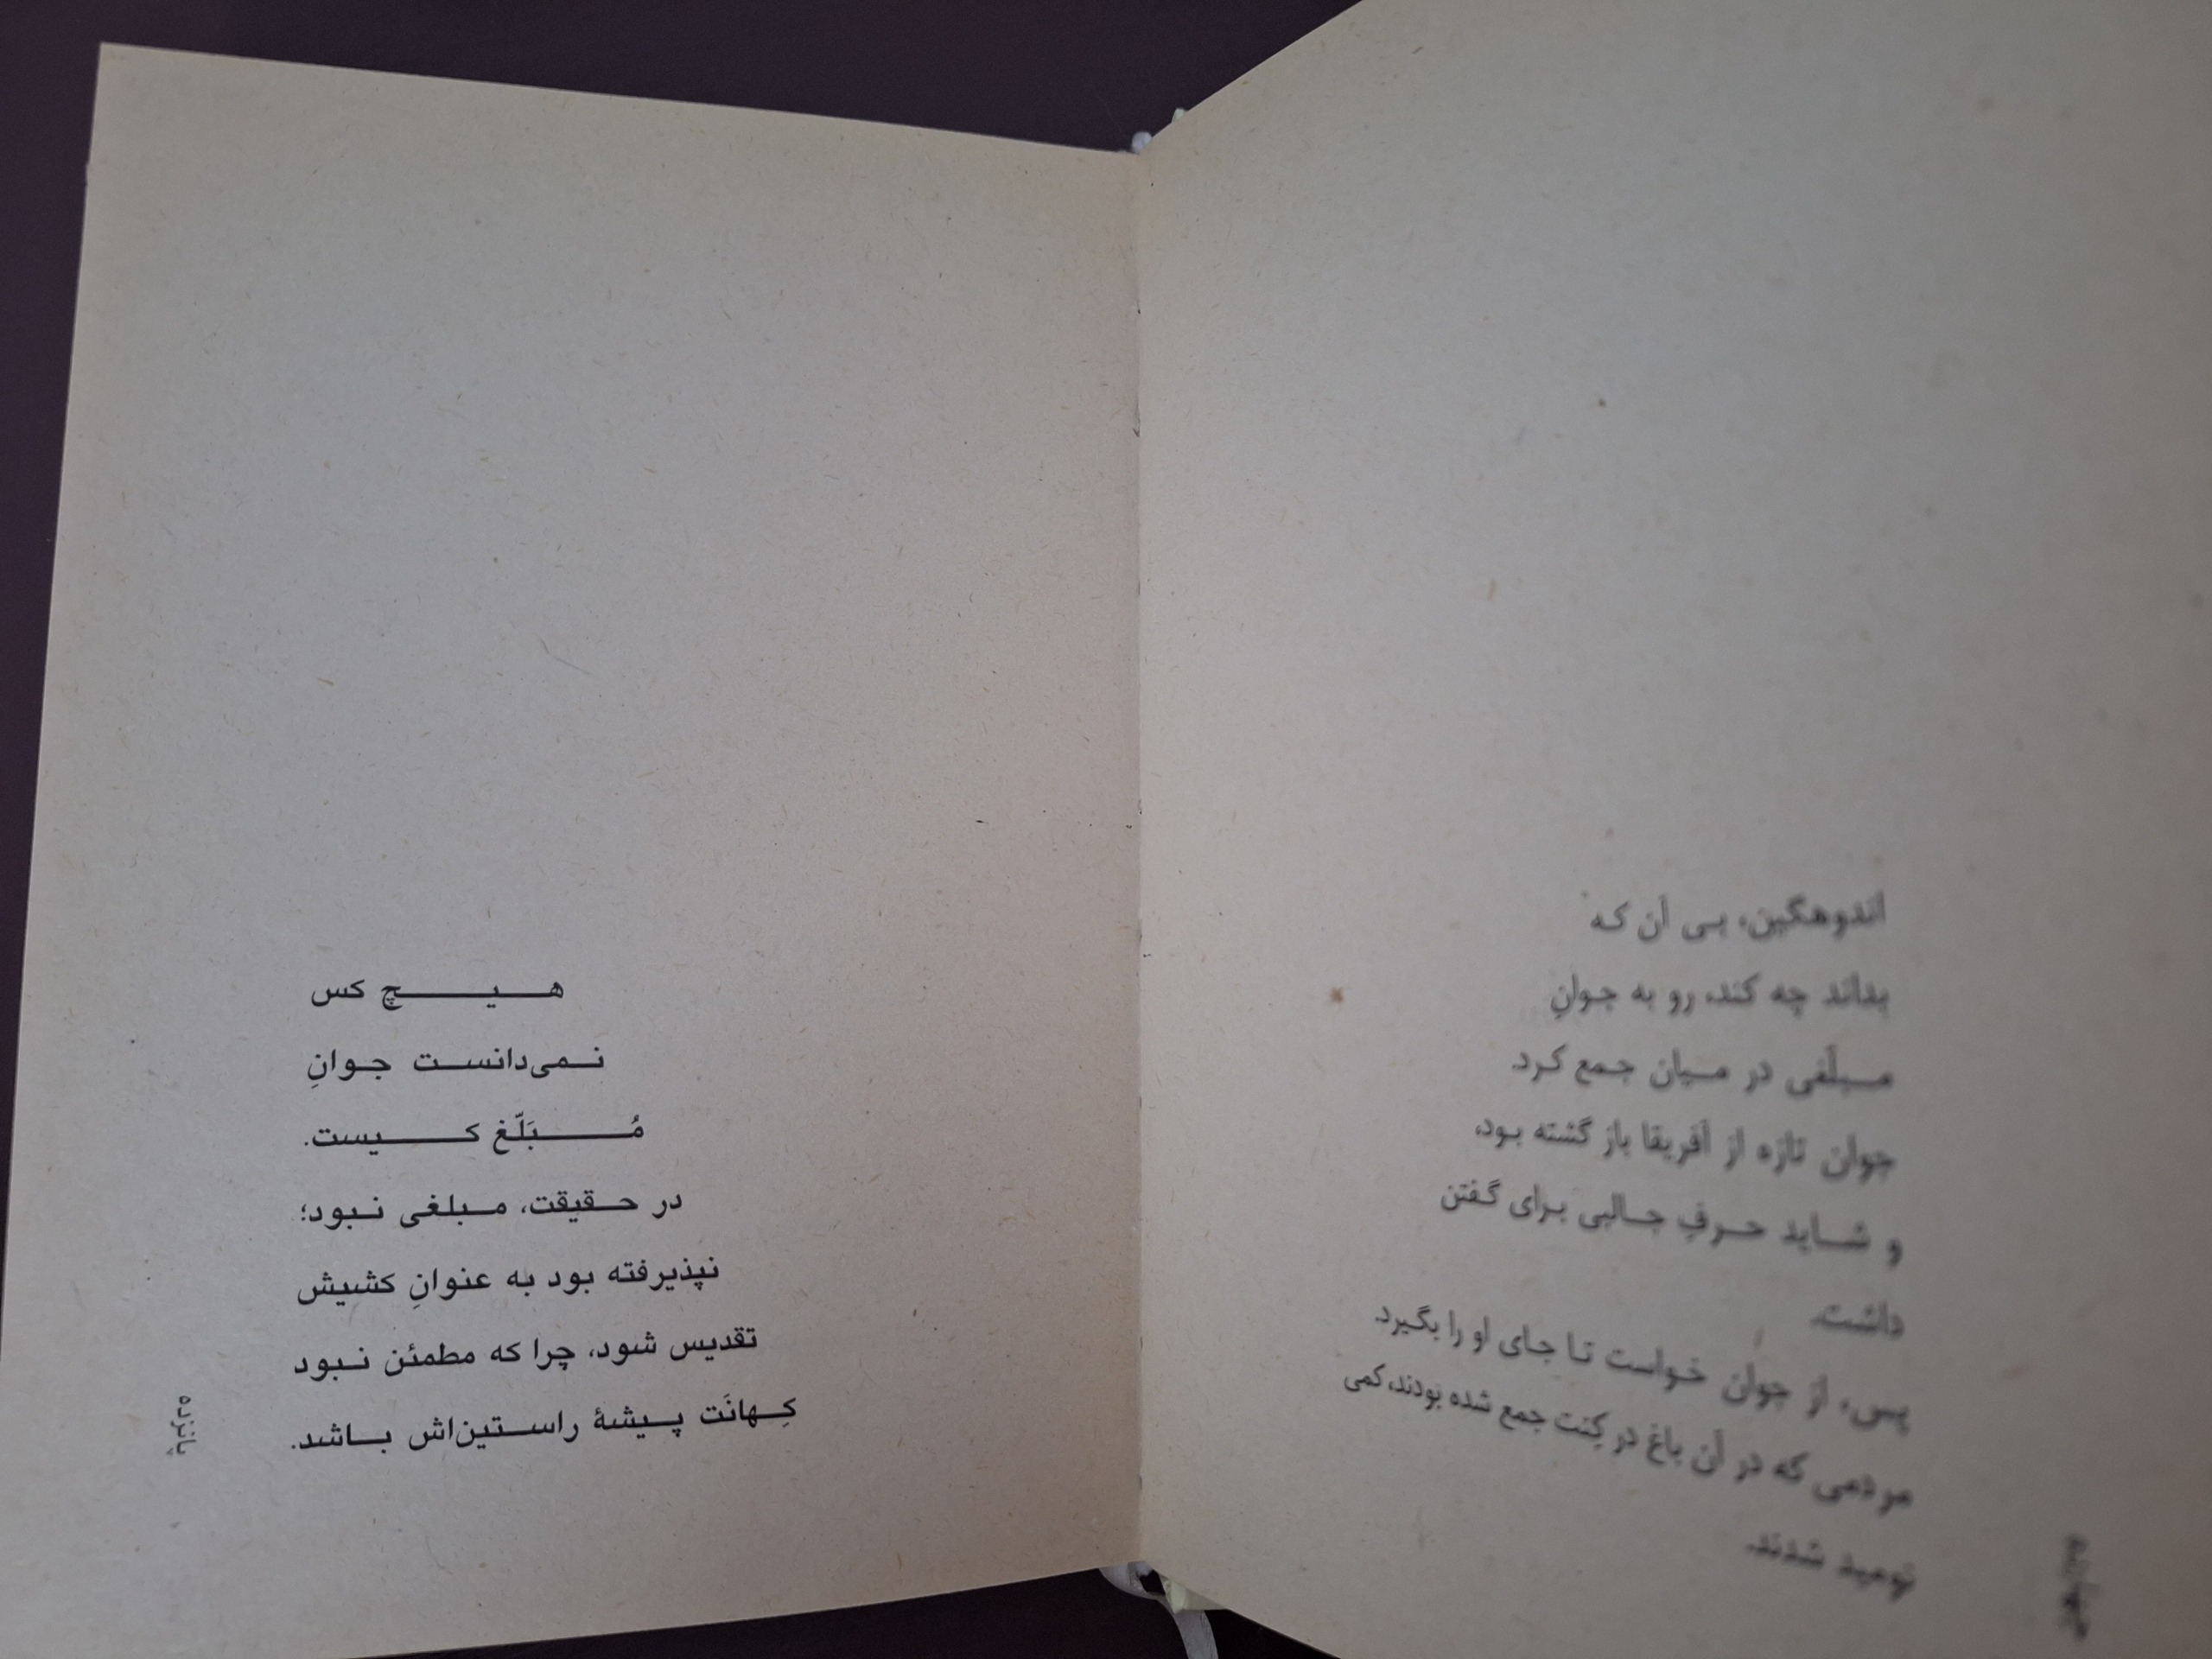 اندوهگین، بی آن که
بداند چه کند، رو به جوانِ
مبلّغی در میان جمع کرد.
جوان تازه از آفریقا باز گشته بود،
و شاید حرفِ جالبی برای گفتن
داشت.
پس، از جوان خواست تا جای او را بگیرد.
مردمی که در آن باغ در کِنت جمع شده بودند، کمی
نومید شدند.
چهارده
هیچ کس
نمی‌دانست جوانِ
مُبَلّغ کیست.
در حقیقت، مبلغی نبود؛
نپذیرفته بود به عنوانِ کشیش
تقدیس شود، چرا که مطمئن نبود
کِهانَت پیشهٔ راستین‌اش باشد.
پانزده